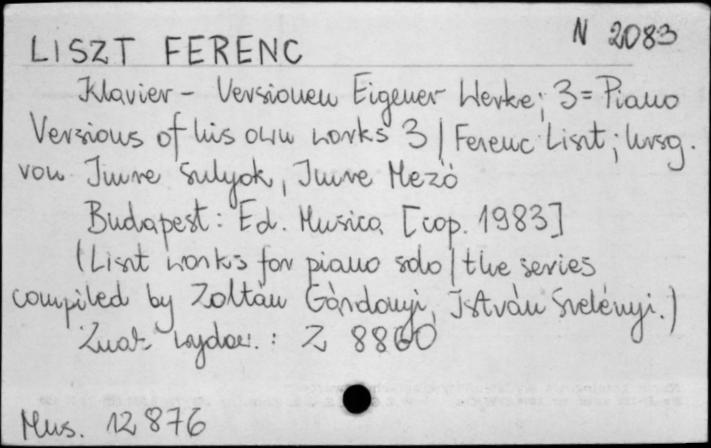 N 2083
LISZT FERENC
Klavier - Versionen Eigener Werke; 3 = Piano
Versions of his own works 3 / Ferenc Liszt; hrsg.
von Imre Sulyok, Imre Mező
Budapest: Ed. Musica [cop. 1983]
(Liszt works for piano solo / the series
compiled by Zoltán Gárdonyi, István Szelényi.)
Znak wydaw.: Z 8860
Mus. 12876